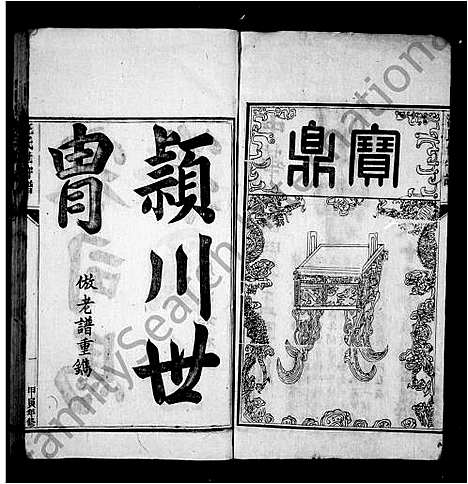 寶鼎
潁川世
冑
倣老譜重鐫
FamilySearch International